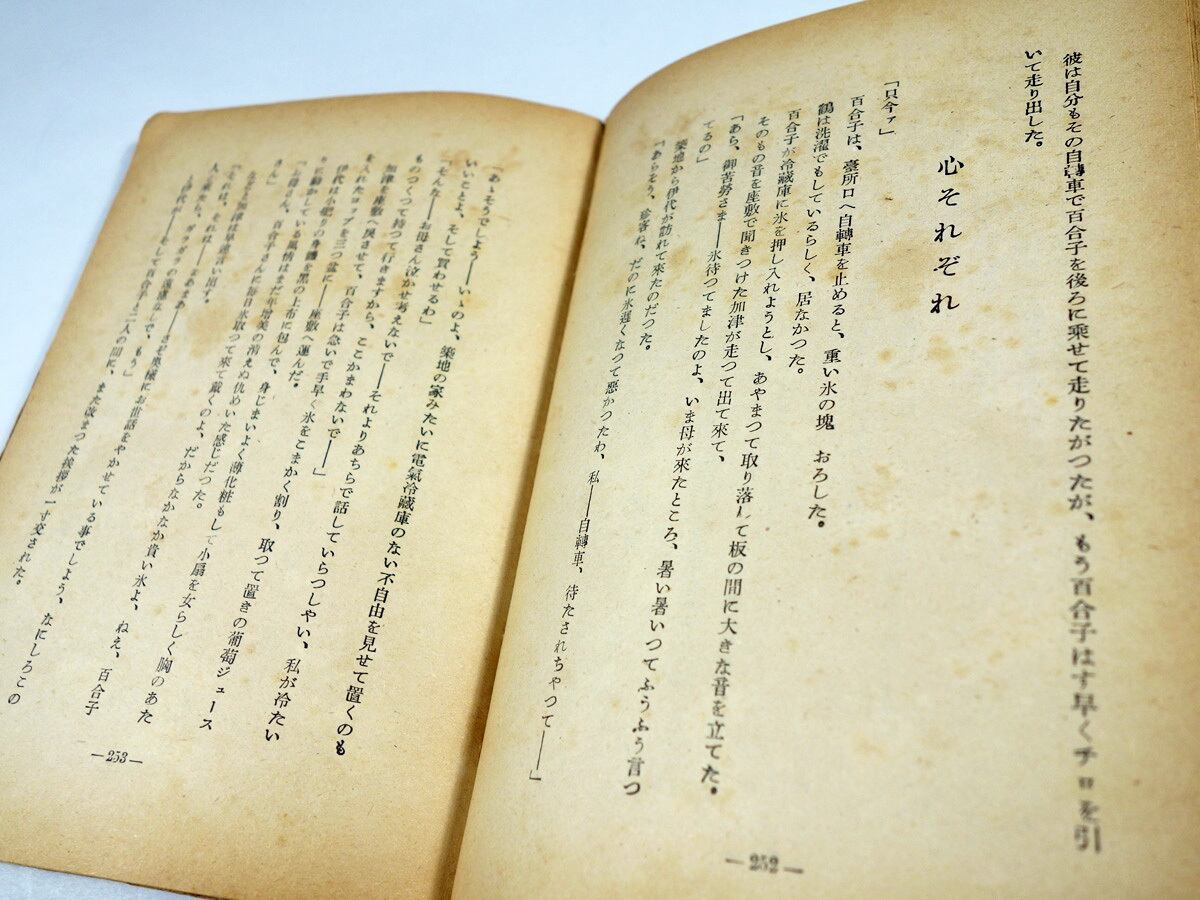 彼は自分もその自轉車で百合子を後ろに乘せて走りたがつたが、もう百合子はす早くチロを引
いて走り出した。
心それぞれ
「只今ァ」
百合子は、臺所口へ自轉車を止めると、重い氷の塊 おろした。
鶴は洗濯でもしているらしく、居なかつた。
百合子が冷藏庫に氷を押し入れようとし、あやまつて取り落して板の間に大きな音を立てた。
そのもの音を座敷で聞きつけた加津が走つて出て來て、
「あら、御苦勞さま――氷待つてましたのよ、いま母が來たところ、暑い暑いつてふうふう言つ
てるの」
築地から伊代が訪れて來たのだつた。
「あらそう、珍客ね、だのに氷遲くなつて惡かつたわ、私――自轉車、待たされちやつて――」
―252―
「あゝそうでしよう――いゝのよ、築地の家みたいに電氣冷藏庫のない不自由を見せて置くのも
いいことよ、そして買わせるわ」
「そんな――お母さん泣かせ考えないで――それよりあちらで話していらつしやい、私が冷たい
ものつくつて持つて行きますから、ここかまわないで――」
加津を座敷へ戻させて、百合子は急いで手早く氷をこまかく割り、取つて置きの葡萄ジュース
を入れたコップを三つ盆に――座敷へ運んだ。
伊代は小肥りの身體を黒の上布に包んで、身じまいよく薄化粧もして小扇を女らしく胸のあた
りに動かしている風情はまだ年増美の消えぬ仇めいた感じだつた。
「お母さん、百合子さんに毎日氷取つて來て戴くのよ、だからなかなか貴い氷よ、ねえ、百合子
さん」
加津は早速言い出す。
「それは、それは――まあまあ――さぞ奧樣にお世話をやかせている事でしよう、なにしろこの
人と來たら、ガラガラの遠慮なしで、もう」
と伊代が――そして百合子と二人の間に、また改まつた挨拶が一寸交された。
―253―